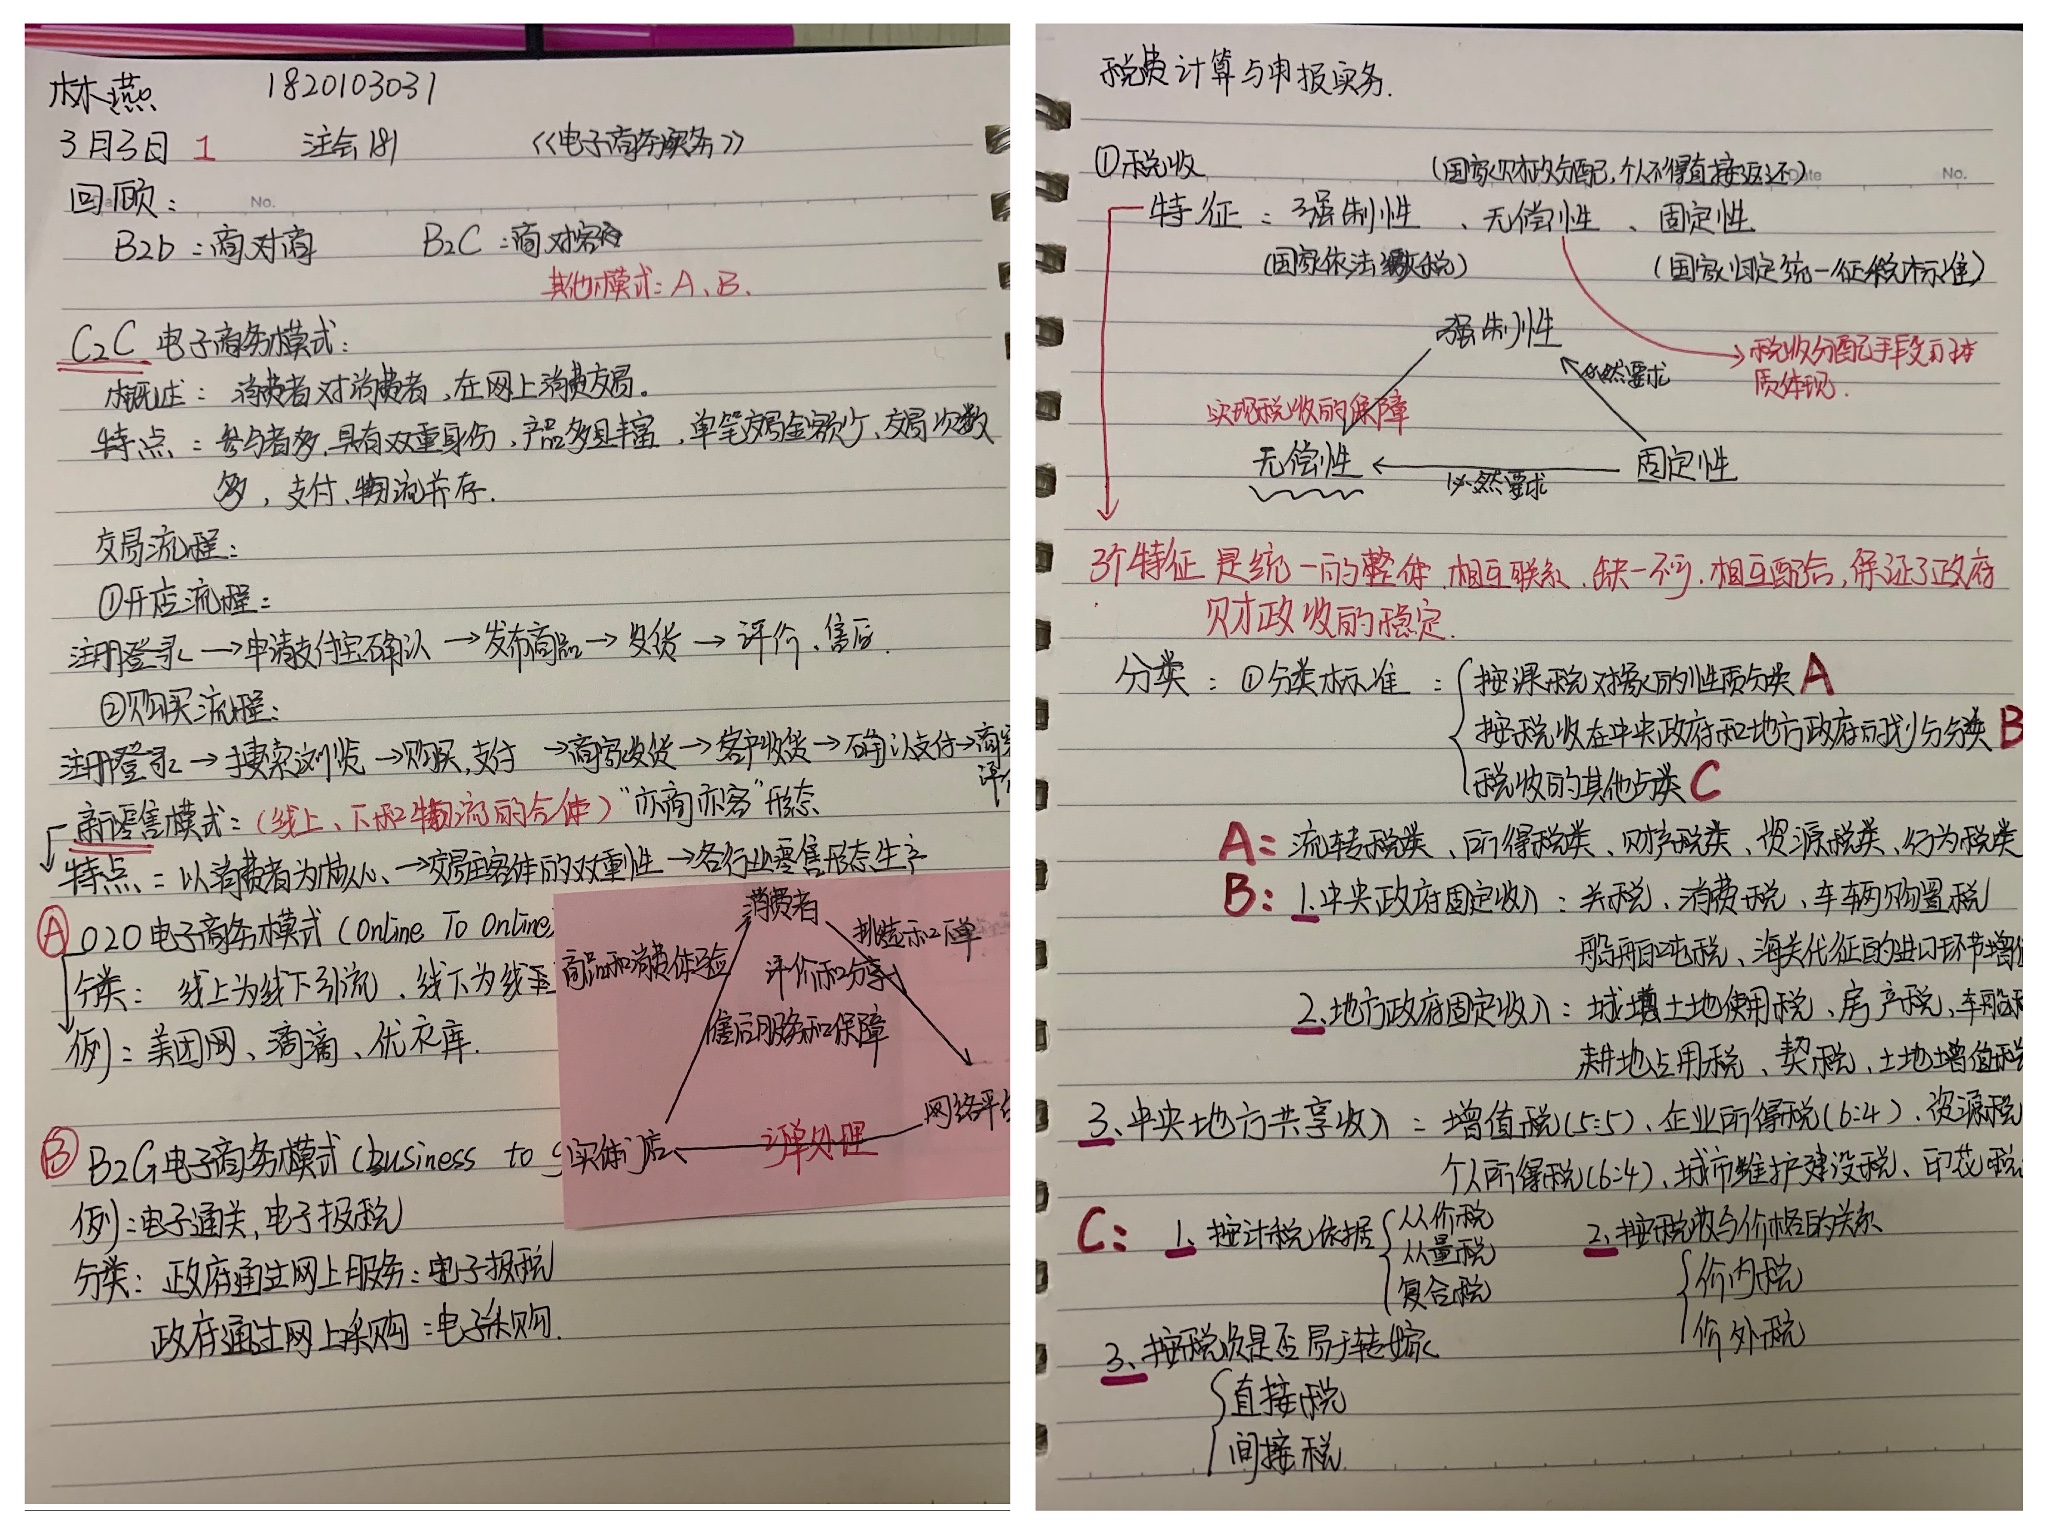 林燕 1820103031
3月3日 1 注会181 《电子商务实务》
回顾：
No.
B2b：商对商 B2C：商对客
其他模式：A、B.
C2C 电子商务模式：
概述：消费者对消费者，在网上消费交易。
特点：参与者多，具有双重身份，产品多且丰富，单笔交易金额少、交易次数
多，支付、物流并存.
交易流程：
①开店流程：
注册登录→申请支付宝确认→发布商品→发货→评价、售后.
②购买流程：
注册登录→搜索浏览→购买，支付→商家发货→客户收货→确认支付→商家
评
新零售模式：（线上、下和物流的合体）“亦商亦客”形态
特点：以消费者为核心、→交易主客体的双重性→各行业零售形态生产
A O2O电子商务模式（Online To Online
分类：线上为线下引流、线下为线
例：美团网、滴滴、优衣库.
B B2G电子商务模式（business to g
例：电子通关，电子报税
分类：政府通过网上服务：电子报税
政府通过网上采购：电子采购.
消费者
挑选和下单
商品和消费体验 评价和分享
售后服务和保障
网络平台
实体门店 订单处理
税费计算与申报实务.
①税收 （国家财政分配，个人不得直接返还）
Date No.
特征：强制性、无偿性、固定性
（国家依法征税） （国家归定统一征税标准）
强制性
税收分配手段的本
质体现.
必然要求
实现税收的保障
无偿性 固定性
必然要求
3个特征是统一的整体，相互联系，缺一不可，相互配合，保证了政府
财政收的稳定.
分类：①分类标准：按课税对象的性质分类 A
按税收在中央政府和地方政府的划分分类 B
税收的其他分类 C
A：流转税类、所得税类、财产税类、资源税类、行为税类
B：1、中央政府固定收入：关税、消费税、车辆购置税
船舶吨税、海关代征的进口环节增值
2、地方政府固定收入：城填土地使用税、房产税、车船税
耕地占用税、契税、土地增值税
3、中央地方共享收入：增值税（5:5）、企业所得税（6:4）、资源税
个人所得税（6:4）、城市维护建设税、印花税
C：1、按计税依据 从价税 2、按税收与价格的关系
从量税
复合税 价内税
价外税
3、按税负是否易于转嫁
直接税
间接税